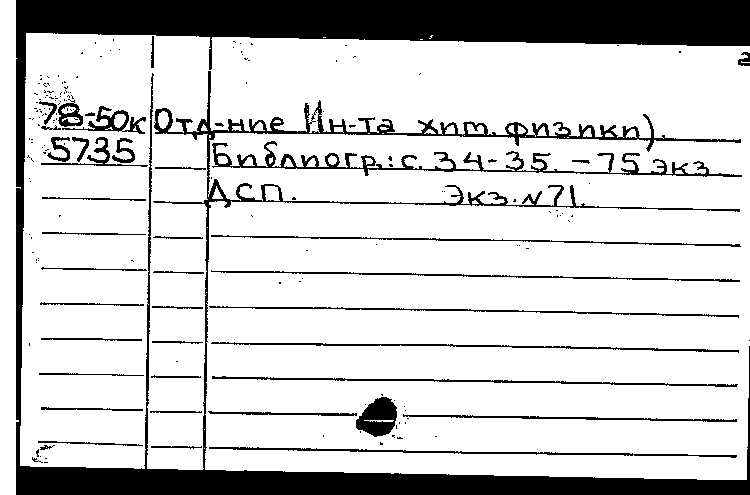 2
78-50к Отд-ние Ин-та хим. физики).
5735 Библиогр.: с. 34-35. - 75 экз
ДСП. Экз. N71.